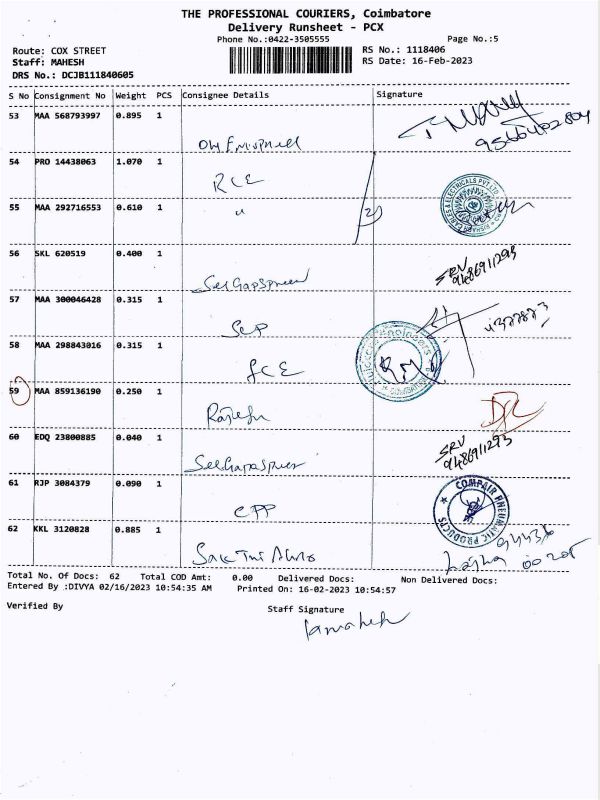 THE PROFESSIONAL COURIERS, Coimbatore
Delivery Runsheet - PCX
Phone No.:0422-3505555 Page No.:5
Route: COX STREET RS No.: 1118406
Staff: MAHESH RS Date: 16-Feb-2023
DRS No.: DCJB111840605
S No Consignment No Weight PCS Consignee Details Signature
53 MAA 568793997 0.895 1
54 PRO 14438063 1.070 1
RCE
55 MAA 292716553 0.610 1 "
56 SKL 620519 0.400 1
SRV
9486911293
57 MAA 300046428 0.315 1
58 MAA 298843016 0.315 1
59 MAA 859136190 0.250 1
60 EDQ 23800885 0.040 1
SRV
9486911293
61 RJP 3084379 0.090 1
CPP
COMPAIR PNEUMATIC PRODUCTS
62 KKL 3120828 0.885 1
Total No. Of Docs: 62 Total COD Amt: 0.00 Delivered Docs: Non Delivered Docs:
Entered By :DIVYA 02/16/2023 10:54:35 AM Printed On: 16-02-2023 10:54:57
Verified By Staff Signature